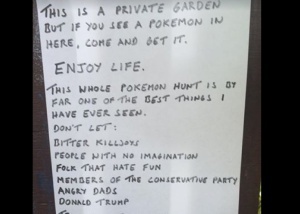 THIS IS A PRIVATE GARDEN
BUT IF YOU SEE A POKEMON IN
HERE, COME AND GET IT.
ENJOY LIFE.
THIS WHOLE POKEMON HUNT IS BY
FAR ONE OF THE BEST THINGS I
HAVE EVER SEEN.
DON'T LET:
BITTER KILLJOYS
PEOPLE WITH NO IMAGINATION
FOLK THAT HATE FUN
MEMBERS OF THE CONSERVATIVE PARTY
ANGRY DADS
DONALD TRUMP